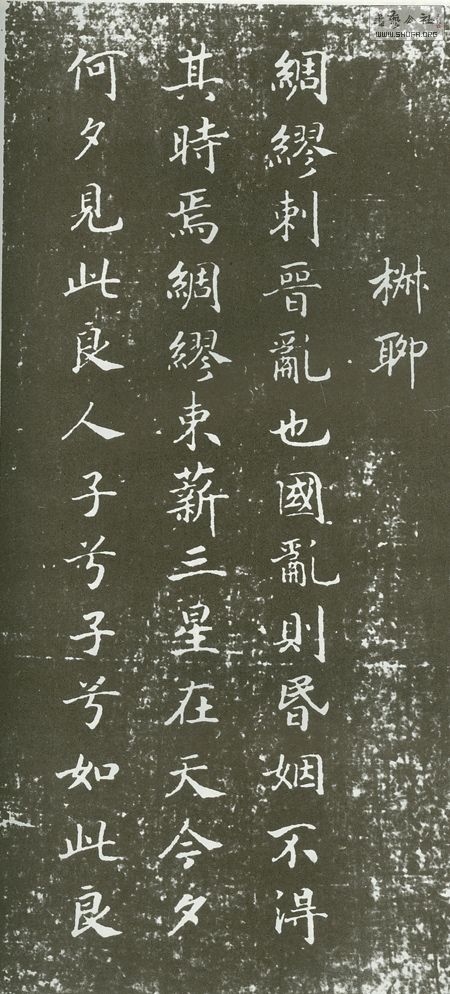 書藝公社
WWW.SHUFA.ORG
椒聊
綢繆刺晉亂也國亂則昬姻不得
其時焉綢繆束薪三星在天今夕
何夕見此良人子兮子兮如此良